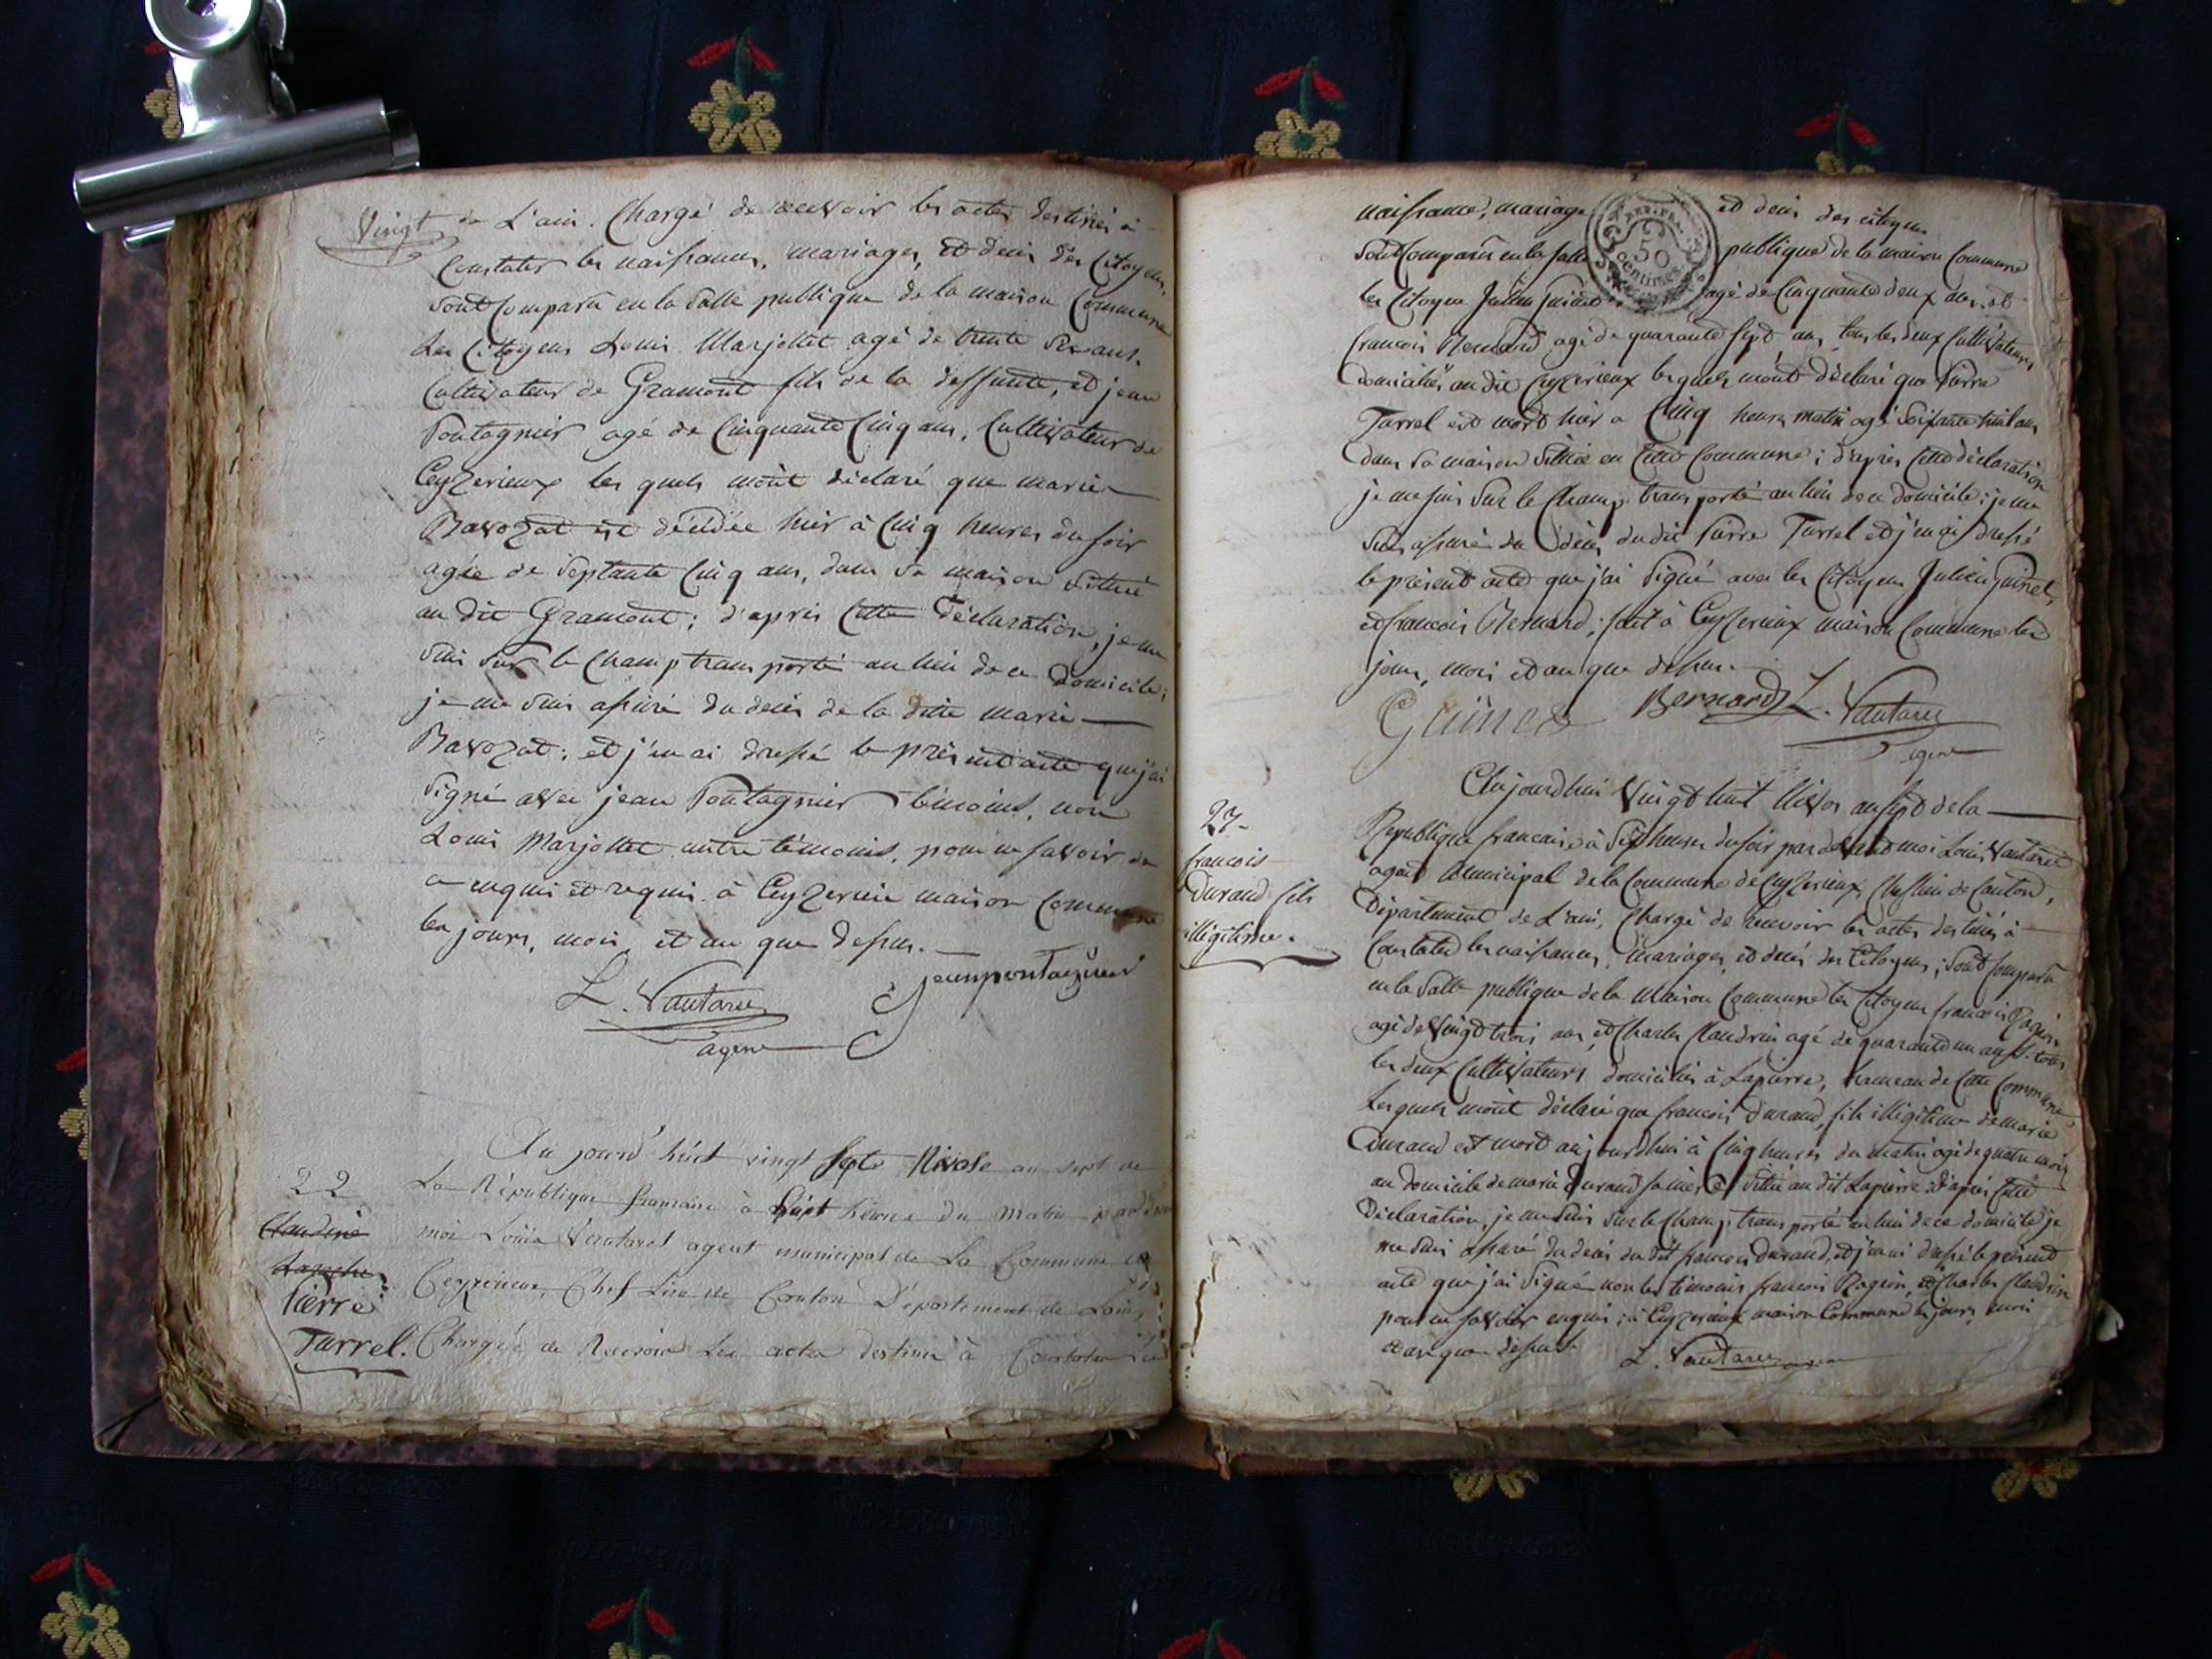 Vingt de L'ain. Chargé de recevoir les actes destinés à
Constater les naissances, mariages, et deces des Citoyens,
sont comparû en la Salle publique de la maison Commune
Les Citoyens Louis Marjollet agé de trente six ans,
Cultivateur de Gramont fils de la deffunte, et jean
Pontagnier agé de Cinquante Cinq ans, Cultivateur de
Ceyzerieux les quels m'ont déclaré que marie
Bavozat est décédée hier à Cinq heures du soir
agée de Septante Cinq ans, dans sa maison situeé
au dit Gramont; d'après Cette Déclaration, je me
suis sur le Champ transporté au lieu de ce Domicile;
je me suis assuré du deces de la dite marie
Bavozat; et j'en ai dressé le présent acte que j'ai
Signé avec jean Pontagnier témoins, non
Louis Marjollet autre témoins, pour ne savoir de
ce enquis et requis. à Ceyzerieu maison Commune
les jours, mois et an que dessus.
L. Vautaret
jean pontagnier
agent
Au jourd'hui vingt Sept Nivose an sept de
22
La République francaise à Sept heure du matin par devant
Claudine
moi Louis Vautaret agent municipal de La Commune de
Ceyzerieux, Chef Lieu de Canton Département de Lain,
Pierre
Turrel. Chargée de Recevoir Les actes destinés à Constater les
naissance, mariage et deces des citoyens
REP. FRA. 50 CENTIMES
sont Comparû en la salle publique de la maison Commune
les Citoyens Julien Guinet agé de Cinquante deux ans, et
francois Bernard agé de quarante sept ans, tous les deux Cultivateurs
domiciliés au dit Ceyzerieux lesquels m'ont déclaré que Pierre
Turrel est mort hier a Cinq heures matin agé soixante huit ans
dans sa maison située en cette Commune; d'après cette déclaration
je me suis sur le Champ transporté au lieu de ce domicile; je me
suis assuré du déces du dit Pierre Turrel et j'en ai dressé
le présent acte que j'ai signé avec les Citoyens Julien Guinet,
et francois Bernard; fait à Ceyzerieux maison Commune les
jours, mois et an que dessus.
Guinet Bernard L. Vautaret
agent
Aujourdhui Vingt huit Nivos an sept de la
23.
Republique francaise à Sept heures du soir pardevant moi Louis Vautaret
francois
agent Municipal de la Commune de Ceyzerieux, Cheflieu de Canton,
Durand fils
Département de L'ain, Chargé de recevoir les actes destinés à
illégitime.
Constater les naissances, mariages, et decès des Citoyens; sont Comparû
en la Salle publique de la Maison Commune les Citoyens francois Ragein
agé de Vingt trois ans, et Charles Flandrin agé de quarante un ans tous
les deux Cultivateurs domiciliés à Lapierre, hameau de Cette Commune,
Lesquels m'ont déclaré que francois Durand, fils illégitime de marie
Durand est mort aujourdhui à Cinq heures du matin agé de quatre mois
au domicile de marie Durand sa mere situé au dit Lapierre; d'après Cette
Déclaration, je me suis sur le Champ transporté au lieu de ce domicile je
me suis assuré du decès du dit françois Durand, et j'en ai dressé le présent
acte que j'ai Signé non les témoins francois Ragein, et Charles Flandrin
pour ne savoir enquis; à Ceyzerieux maison Commune les jours, mois
et an que dessus.
L. Vautaret